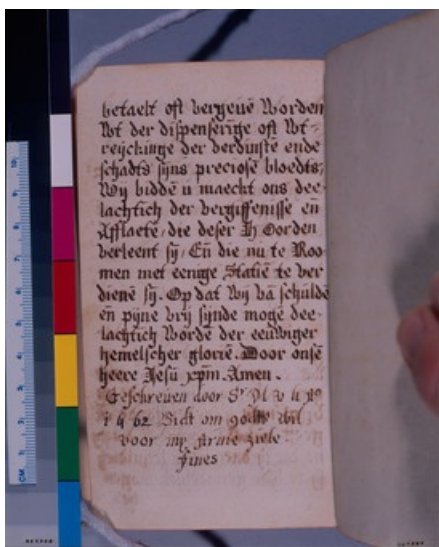 betaelt oft vergeuē Worden
Wt der dispenserīge oft Wt-
reyckinge der verdinste ende
schadts sijns preciose bloedts,
Wy biddē ū maeckt ons dee-
lachtich der vergiffenisse eñ
Afflaete, die deser H Oorden
verleent sy, Eñ die nu te Roo-
men met eenige Statiē te ver
dienē sy. Op dat Wy vā schuldē
eñ pijne vrij sijnde mogē dee-
lachtich Wordē der eeuwiger
hemelscher glorie. Door onsē
heere Jesū xp̄m. Amen.
Geschreuen door Sr
62 Bidt om godts Wil
voor my Arme ziele
fines